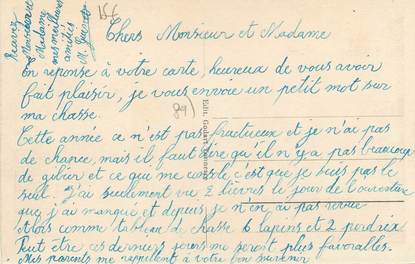 Chers Monsieur et Madame
En reponse à votre carte, heureux de vous avoir
fait plaisir, je vous envoie un petit mot sur
ma chasse.
Cette année ce n'est pas fructueux et je n'ai pas
de chance, mais il faut dire qu'il n'y a pas beaucoup
de gibier et ce qui me console c'est que je suis pas le
seul. J'ai seulement vu 2 lièvres le jour de l'ouverture
que j'ai manqué et depuis je n'en ai pas revue
alors comme tableau de chasse 6 lapins et 2 perdrix
Peut être ces derniers jours me seront plus favorables.
Mes parents me rappellent à votre bon souvenir
Recevez
Monsieur
Madame
mes meilleures
amitiés
M.
156
89)
Edit. Godart